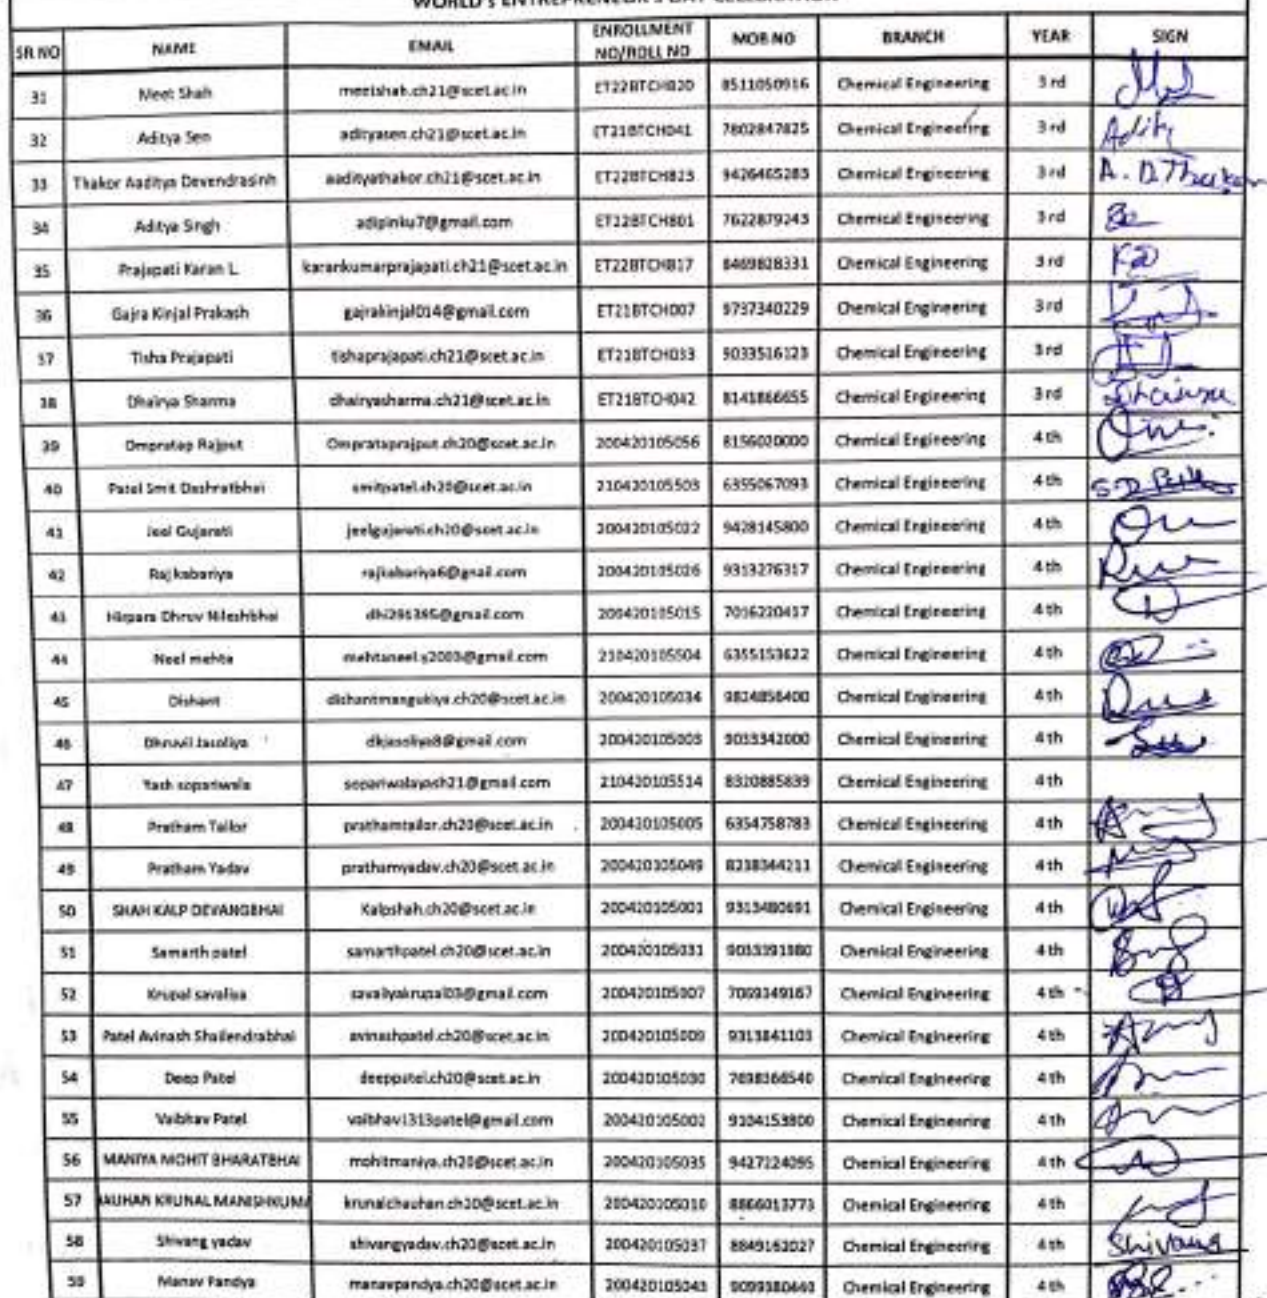 WORLD's ENTREPRENEUR's DAY CELEBRATION
SR NO NAME EMAIL ENROLLMENT NO/ROLL NO MOB NO BRANCH YEAR SIGN
31 Meet Shah meetshah.ch21@scet.ac.in ET22BTCH820 8511050916 Chemical Engineering 3rd
32 Aditya Sen adityasen.ch21@scet.ac.in ET21BTCH041 7802847825 Chemical Engineering 3rd Adity
33 Thakor Aaditya Devendrasinh aadityathakor.ch21@scet.ac.in ET22BTCH823 9426465283 Chemical Engineering 3rd A. D. Thakor
34 Aditya Singh adipinku7@gmail.com ET22BTCH801 7622879243 Chemical Engineering 3rd
35 Prajapati Karan L karankumarprajapati.ch21@scet.ac.in ET22BTCH817 8469828331 Chemical Engineering 3rd
36 Gajra Kinjal Prakash gajrakinjal014@gmail.com ET21BTCH007 9737340229 Chemical Engineering 3rd
37 Tisha Prajapati tishaprajapati.ch21@scet.ac.in ET21BTCH033 9033516123 Chemical Engineering 3rd
38 Dhairya Sharma dhairyasharma.ch21@scet.ac.in ET21BTCH042 8141866655 Chemical Engineering 3rd
39 Ompratap Rajput Ompratap​rajput.ch20@scet.ac.in 200420105056 8156020000 Chemical Engineering 4th
40 Patel Smit Dashratbhai smitpatel.ch20@scet.ac.in 210420105503 6355067093 Chemical Engineering 4th
41 Jeel Gujarati jeelgujarati.ch20@scet.ac.in 200420105022 9428145800 Chemical Engineering 4th
42 Raj kabariya rajkabariya6@gmail.com 200420105026 9313276317 Chemical Engineering 4th
43 Hirpara Dhruv Nileshbhai dhi291395@gmail.com 200420105015 7016220417 Chemical Engineering 4th
44 Neel mehta mehtaneel.s2003@gmail.com 210420105504 6355153622 Chemical Engineering 4th
45 Dishant dishantmangukiya.ch20@scet.ac.in 200420105034 9824856400 Chemical Engineering 4th
46 Dhruvil Jasoliya dkjasoliya8@gmail.com 200420105003 9033342000 Chemical Engineering 4th
47 Yash sopariwala sopariwalayash21@gmail.com 210420105514 8320885839 Chemical Engineering 4th
48 Pratham Tailor prathamtailor.ch20@scet.ac.in 200420105005 6354758783 Chemical Engineering 4th
49 Pratham Yadav prathamyadav.ch20@scet.ac.in 200420105049 8238344211 Chemical Engineering 4th
50 SHAH KALP DEVANGBHAI Kalpshah.ch20@scet.ac.in 200420105001 9313480691 Chemical Engineering 4th
51 Samarth patel samarthpatel.ch20@scet.ac.in 200420105031 9033391980 Chemical Engineering 4th
52 Krupal savaliya savaliyakrupal03@gmail.com 200420105007 7069349167 Chemical Engineering 4th
53 Patel Avinash Shailendrabhai avinashpatel.ch20@scet.ac.in 200420105009 9313841103 Chemical Engineering 4th
54 Deep Patel deeppatel.ch20@scet.ac.in 200420105030 7698366540 Chemical Engineering 4th
55 Vaibhav Patel vaibhav1313patel@gmail.com 200420105002 9104153800 Chemical Engineering 4th
56 MANIYA MOHIT BHARATBHAI mohitmaniya.ch20@scet.ac.in 200420105035 9427224095 Chemical Engineering 4th
57 AUHAN KRUNAL MANISHKUMA krunalchauhan.ch20@scet.ac.in 200420105010 8866013773 Chemical Engineering 4th
58 Shivang yadav shivangyadav.ch20@scet.ac.in 200420105037 8849162027 Chemical Engineering 4th Shivang
59 Manav Pandya manavpandya.ch20@scet.ac.in 200420105043 9099380440 Chemical Engineering 4th